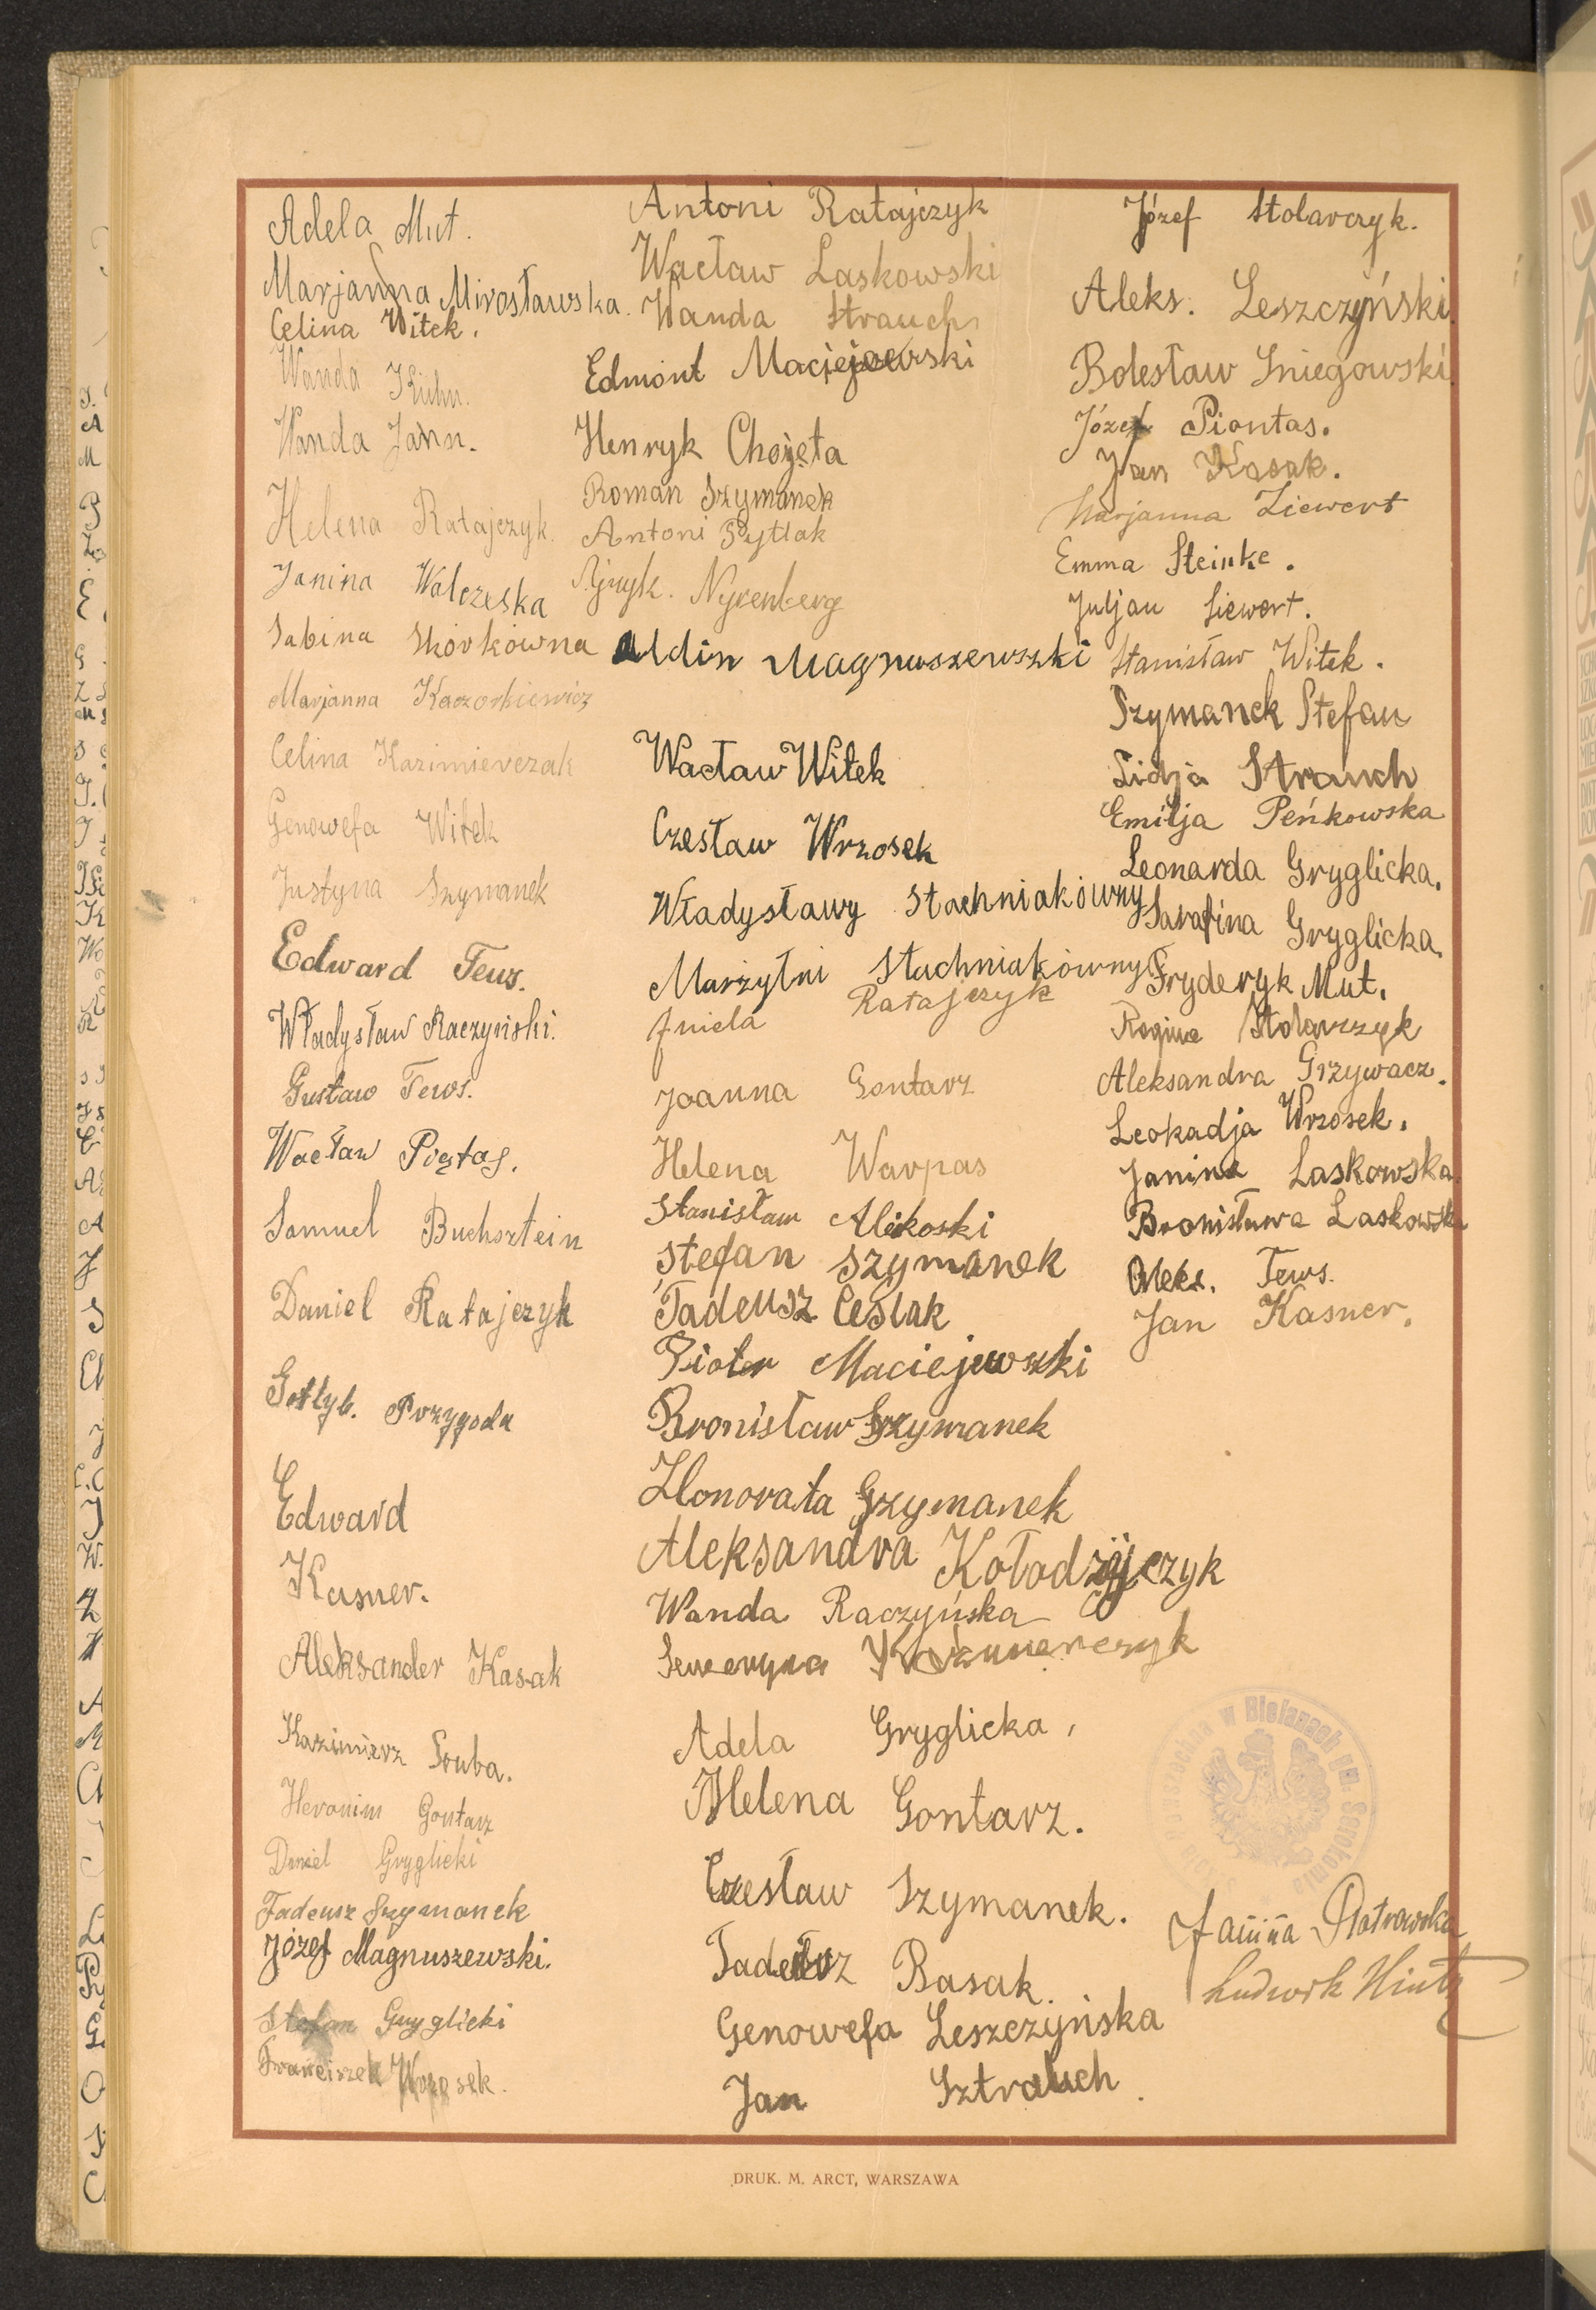 Adela Mut.
Marjanna Mirosławska.
Celina Witek.
Wanda Kuhn.
Wanda Jann.
Helena Ratajczyk.
Janina Walczeska
Sabina Skórkówna
Marjanna Kaczorkiewicz
Celina Kazimierczak
Genowefa Witek
Justyna Szymanek
Edward Tews.
Władysław Raczyński.
Gustaw Tews.
Wacław Piątas.
Samuel Buchsztein
Daniel Ratajczyk
Gotlyb. Przygoda
Edward
Kasner.
Aleksander Kasak
Kazimierz Sruba.
Heronim Gontarz
Daniel Gryglicki
Tadeusz Szymanek
Józef Magnuszewski.
Stefan Gryglicki
Franciszek Wrzosek.
Antoni Ratajczyk
Wacław Laskowski
Wanda Strauch
Edmont Maciejewski
Henryk Chojęta
Roman Szymanek
Antoni Pytlak
Nyrenberg
Aldin Magnuszewszki
Wacław Witek
Czesław Wrzosek
Władysławy Stachniakówny
Marzytni Stachniakówny
Aniela Ratajczyk
Joanna Gontarz
Helena Warpas
Stanisław Alikoski
Stefan Szymanek
Tadeusz Ceslak
Piotr Maciejewszki
Bronisław Szymanek
Honorata Szymanek
Aleksandra Kołodziejczyk
Wanda Raczyńska
Seweryna
Adela Gryglicka,
Helena Gontarz.
Czesław Szymanek.
Tadeusz Basak.
Genowefa Leszczyńska
Jan Sztrauch.
Józef Stolarczyk.
Aleks. Leszczyński.
Bolesław Sniegowski.
Józef Piontas.
Jan Kasak.
Marjanna Ziewert
Emma Steinke.
Juljan Siewert.
Stanisław Witek.
Szymanek Stefan
Lidja Strauch
Emilja Peńkowska
Leonarda Gryglicka.
Sarafina Gryglicka.
Fryderyk Mut.
Regina Stolarczyk
Aleksandra Grzywacz.
Leokadja Wrzosek.
Janina Laskowska.
Bronisława Laskowska
Aleks. Tews.
Jan Kasner.
w Bielanach gm. Serokomla
Janina Piotrowska
Ludwik Hintz
DRUK. M. ARCT, WARSZAWA